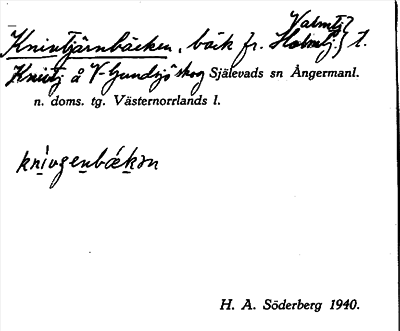 Valmtj}
Knivtjärnbäcken, bäck fr. Holmtj.} t.
Knivtj å V-Gundsjö skog Själevads sn Ångermanl.
n. doms. tg. Västernorrlands l.
knìvgenbækən
H. A. Söderberg 1940.